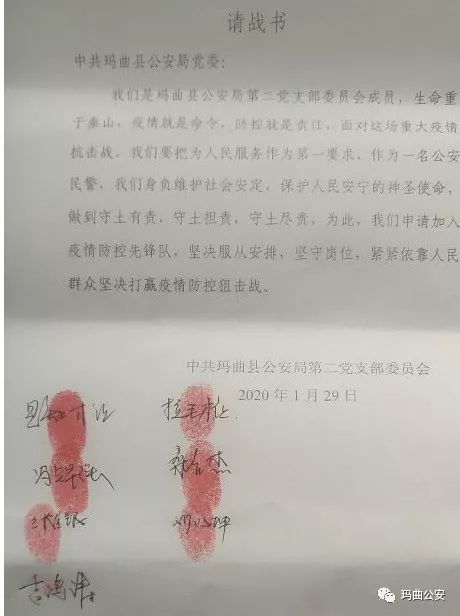 请战书
中共玛曲县公安局党委：
我们是玛曲县公安局第二党支部委员会成员，生命重
于泰山，疫情就是命令，防控就是责任，面对这场重大疫情
抗击战，我们要把为人民服务作为第一要求，作为一名公安
民警，我们身负维护社会安定，保护人民安宁的神圣使命，
做到守土有责，守土担责，守土尽责，为此，我们申请加入
疫情防控先锋队，坚决服从安排，坚守岗位，紧紧依靠人民
群众坚决打赢疫情防控狙击战。
中共玛曲县公安局第二党支部委员会
2020年1月29日
桑合杰
玛曲公安